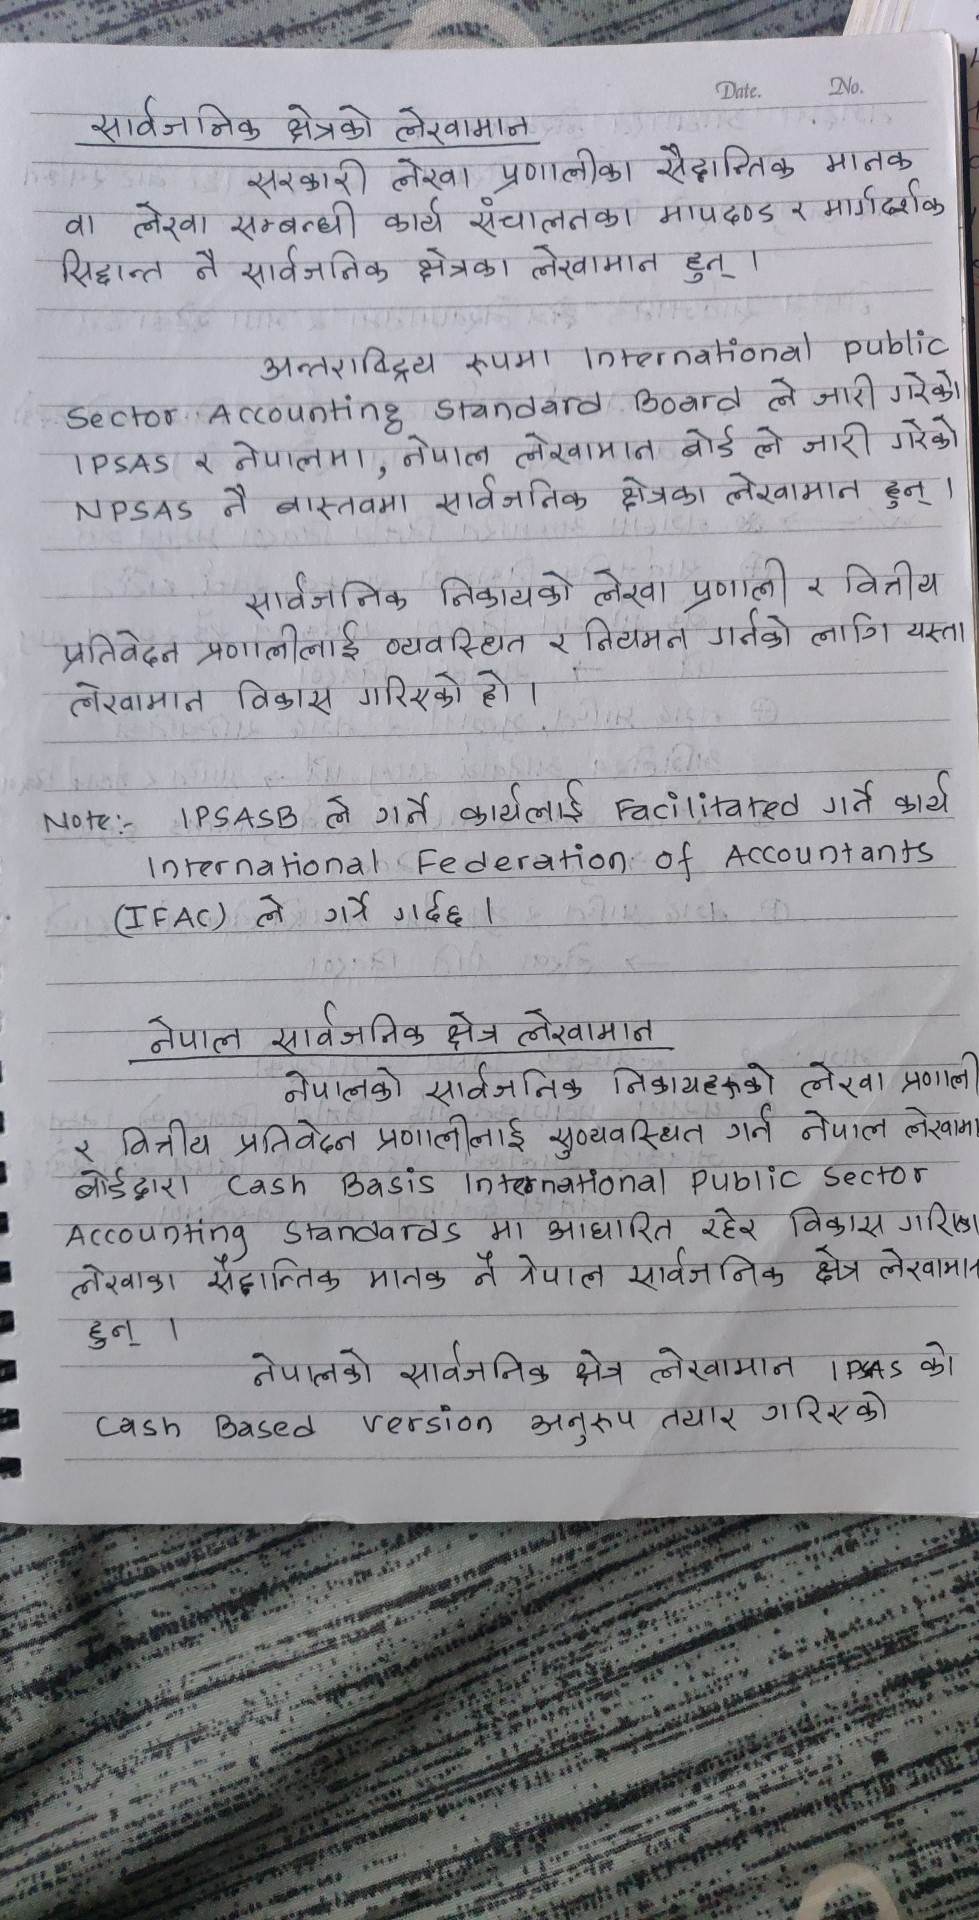 Date. No.
सार्वजनिक क्षेत्रको लेखामान
सरकारी लेखा प्रणालीका सैद्धान्तिक मानक
वा लेखा सम्बन्धी कार्य संचालनका मापदण्ड र मार्गदर्शक
सिद्धान्त नै सार्वजनिक क्षेत्रका लेखामान हुन् ।
रुपमा International public
Sector Accounting Standard Board ले जारी गरेको
IPSAS र नेपालमा, नेपाल लेखामान बोर्ड ले जारी गरेको
NPSAS नै वास्तवमा सार्वजनिक क्षेत्रका लेखामान हुन् ।
सार्वजनिक निकायको लेखा प्रणाली र वित्तीय
प्रतिवेदन प्रणालीलाई व्यवस्थित र नियमन गर्नको लागि यस्ता
लेखामान विकास गरिएको हो ।
Note:- IPSASB ले गर्ने कार्यलाई Facilitated गर्ने कार्य
International Federation of Accountants
(IFAC) ले गर्ने गर्दछ ।
नेपाल सार्वजनिक क्षेत्र लेखामान
नेपालको सार्वजनिक निकायहरुको लेखा प्रणाली
र वित्तीय प्रतिवेदन प्रणालीलाई सुव्यवस्थित गर्न नेपाल लेखामा
बोर्डद्वारा Cash Basis International Public Sector
Accounting Standards मा आधारित रहेर विकास गरिएका
लेखाका सैद्धान्तिक मानक नै नेपाल सार्वजनिक क्षेत्र लेखामान
हुन् ।
नेपालको सार्वजनिक क्षेत्र लेखामान IPSAS को
Cash Based version अनुरुप तयार गरिएको